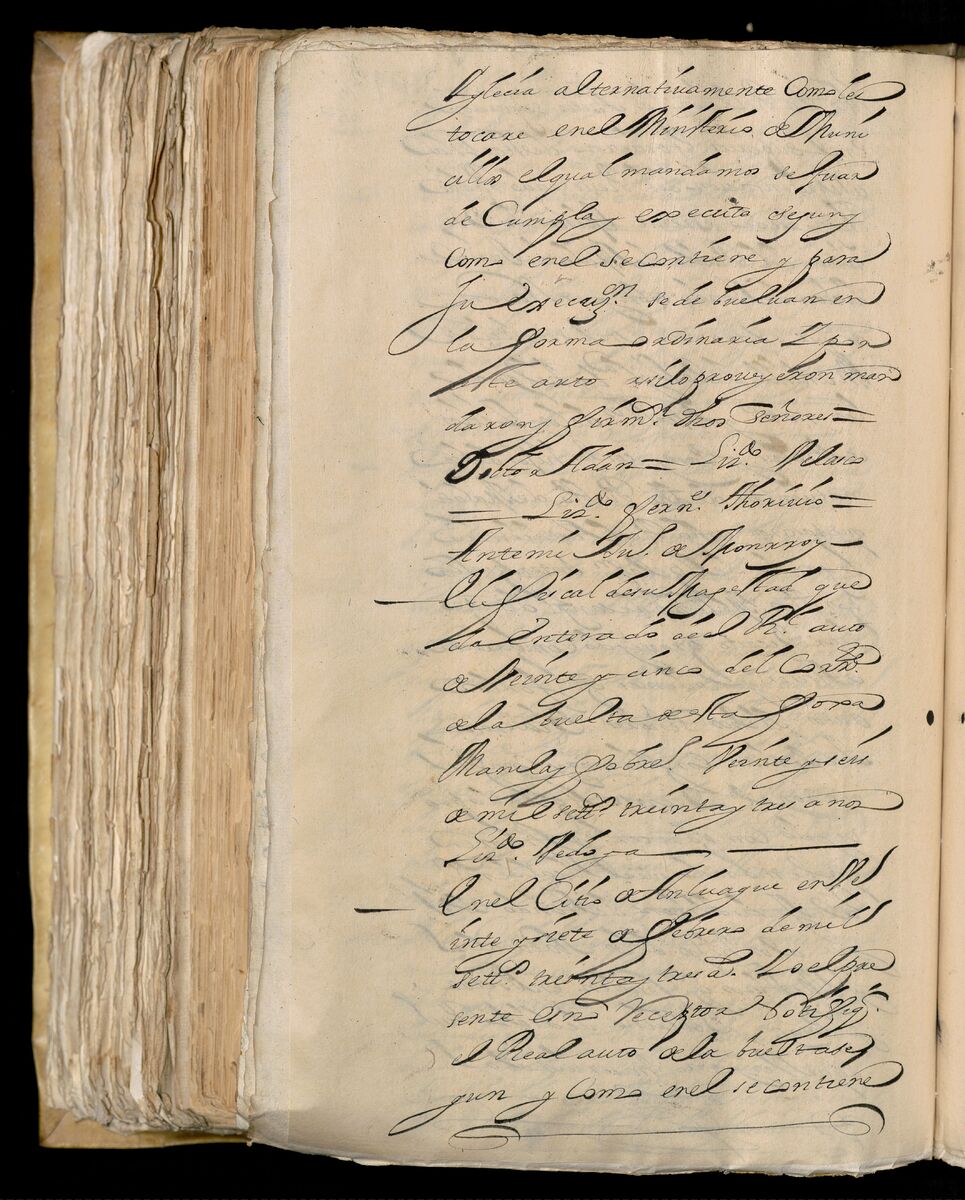 Yglecia alternativamente Como les
tocare en el Ministerio de Muni
cillos el qual mandamos se guar
de Cumpla y execute segun y
Como en el se contiene y para
su execuzon. se debuelvan en
la forma ordinaria Y por
este auto assi lo proveyeron man
daron y firmn. dhos señores =
Doctor Adan = Lizdo. Velasco
= Lizdo. fern. Thorivio =
Antemi Jun. de Monrroy —
El fiscal de su Magestad que
da enterado de el Rl. auto
de Veinte y cinco del Corrte.
de la buelta de esta foxa
Manila y febro. Veinte y seis
de mil settos. treinta y tres años
Lizdo. Vedoya
En el Citio de Anluague en Ve
inte y siete de febrero de mil
setts. treinta y tres as. Yo el pre
sente Esno Receptor Notifiq.
el Real auto de la buelta se
gun y Como en el se contiene